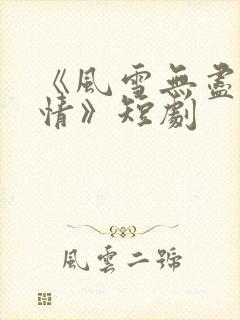 《風雪無盡
情》短劇
風雲二號